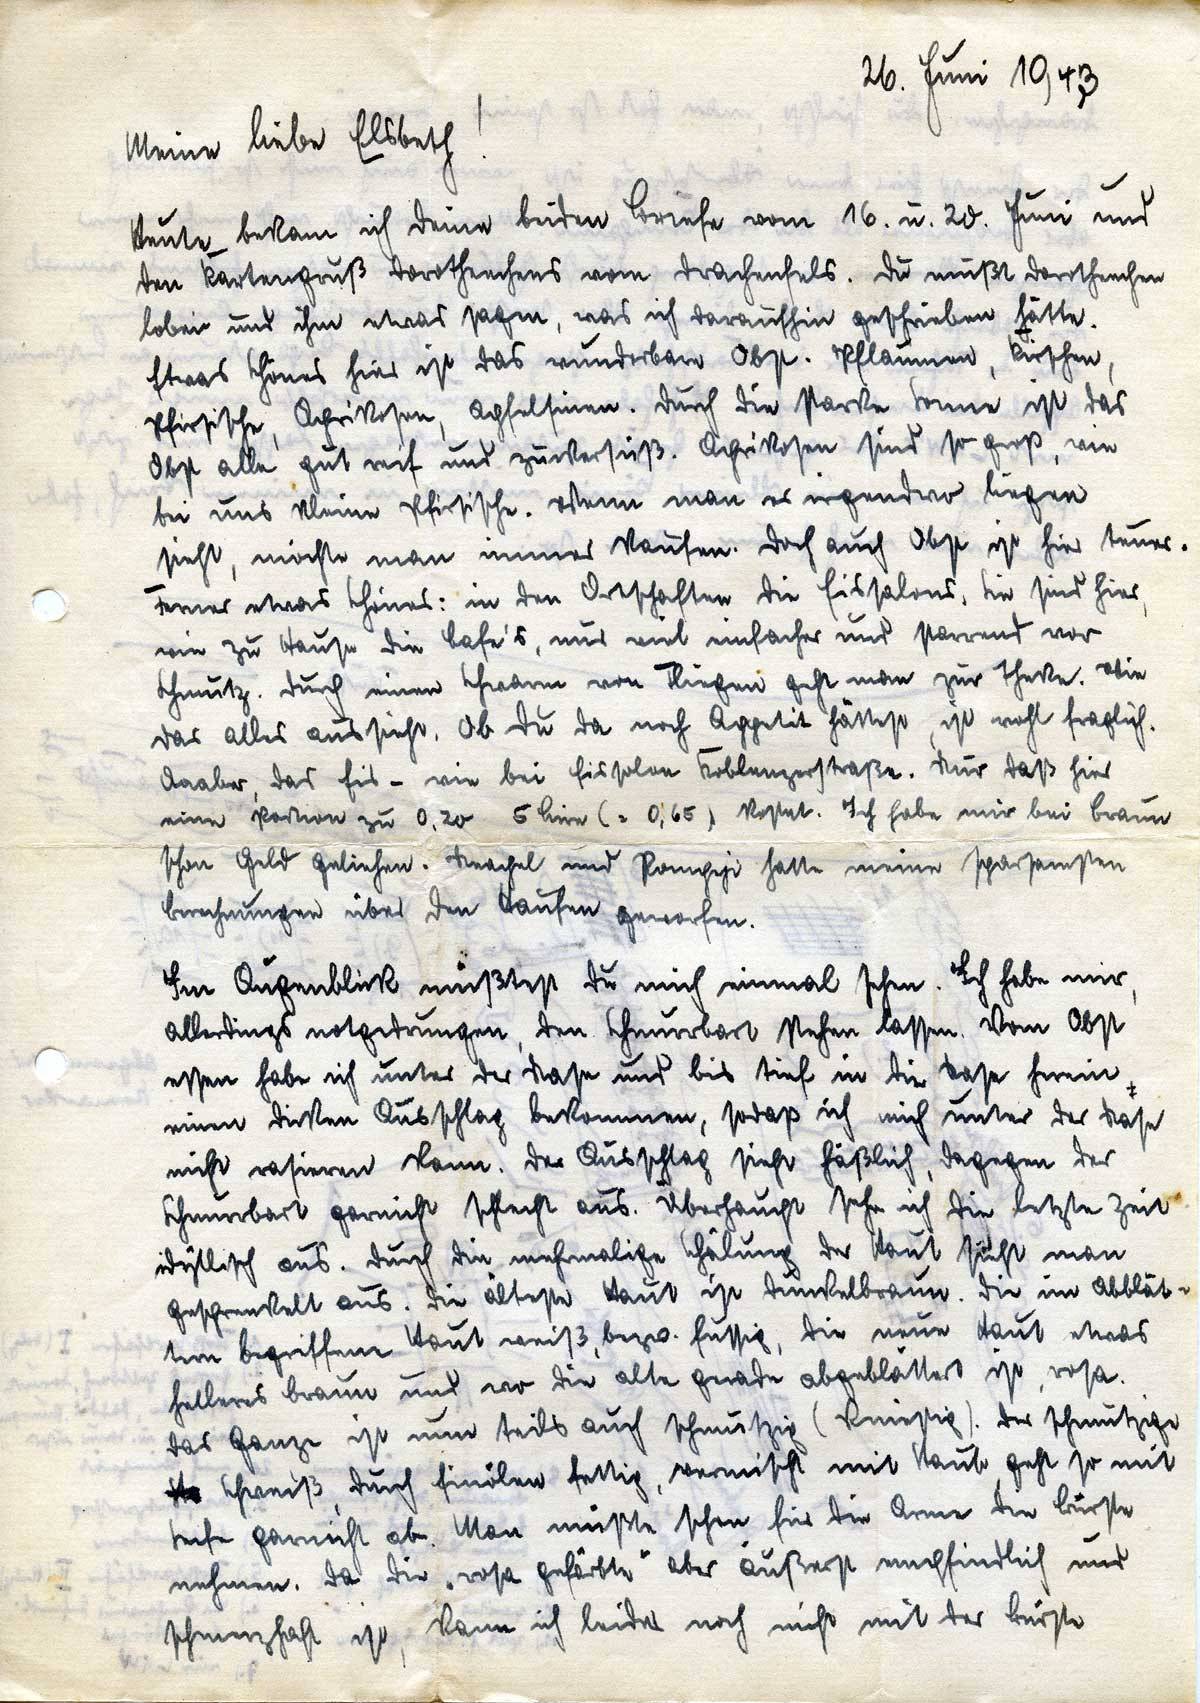 26. Juni 1943
Meine liebe Elsbeth!
Heute bekam ich Deine beiden Briefe vom 16. u. 20. Juni und
den Kartengruß Dorotheechens vom Drachenfels. Du mußt Dorotheechen
loben und ihm etwas sagen, was ich daraufhin geschrieben hätte.
Etwas Schönes hier ist das wunderbare Obst. Pflaumen, Kirschen,
Pfirsische, Aprikosen, Apfelsinen. Durch die starke Sonne ist das
Obst alle gut reif und zuckersüß. Aprikosen sind so groß, wie
bei uns kleine Pfirsische. Wenn man es irgendwo liegen
sieht, möchte man immer kaufen. Doch auch Obst ist hier teuer.
Ferner etwas Schönes: in den Ortschaften die Eissalons. Sie sind hier,
wie zu Hause die Cafe's, nur viel einfacher und starrend vor
Schmutz. Durch einen Schwarm von Fliegen geht man zur Theke. Wie
das alles aussieht. Ob Du da noch Appetit hättest, ist wohl fraglich.
Aaaber, das Eis - wie bei Eissalon Koblenzerstraße. Nur daß hier
eine Portion zu 0,20 5 Lire (= 0,65) kostet. Ich habe mir bei Braun
schon Geld geliehen. Neapel und Pompeji hatte meine sparsamsten
Berechnungen über den Haufen geworfen.
Im Augenblick müßtest Du mich einmal sehen. Ich habe mir,
allerdings notgedrungen, den Schnurrbart stehen lassen. Vom Obst
essen habe ich unter der Nase und bis tief in die Nase herein
einen dicken Ausschlag bekommen, sodaß ich mich unter der Nase
nicht rasieren kann. Der Ausschlag sieht häßlich, dagegen der
Schnurrbart garnicht schlecht aus. Überhaupt sehe ich die letzte Zeit
idyllisch aus. Durch die mehrmalige Schälung der Haut sieht man
gesprenkelt aus. Die älteste Haut ist dunkelbraun. Die im Abblät-
tern begriffene Haut weiß, bezw. fussig, die neue Haut etwas
helleres braun und wo die alte gerade abgeblättert ist, rosa.
Das Ganze ist nun teils auch schmutzig (kniestig). Der schmutzige
Schweiß, durch Einölen fettig, vermischt mit Staub, geht so mit
Seife garnicht ab. Man müßte schon für die Arme die Bürste
nehmen. Da die "rosa gefärbte" aber äußerst empfindlich und
schmerzhaft ist, kann ich leider noch nicht mit der Bürste